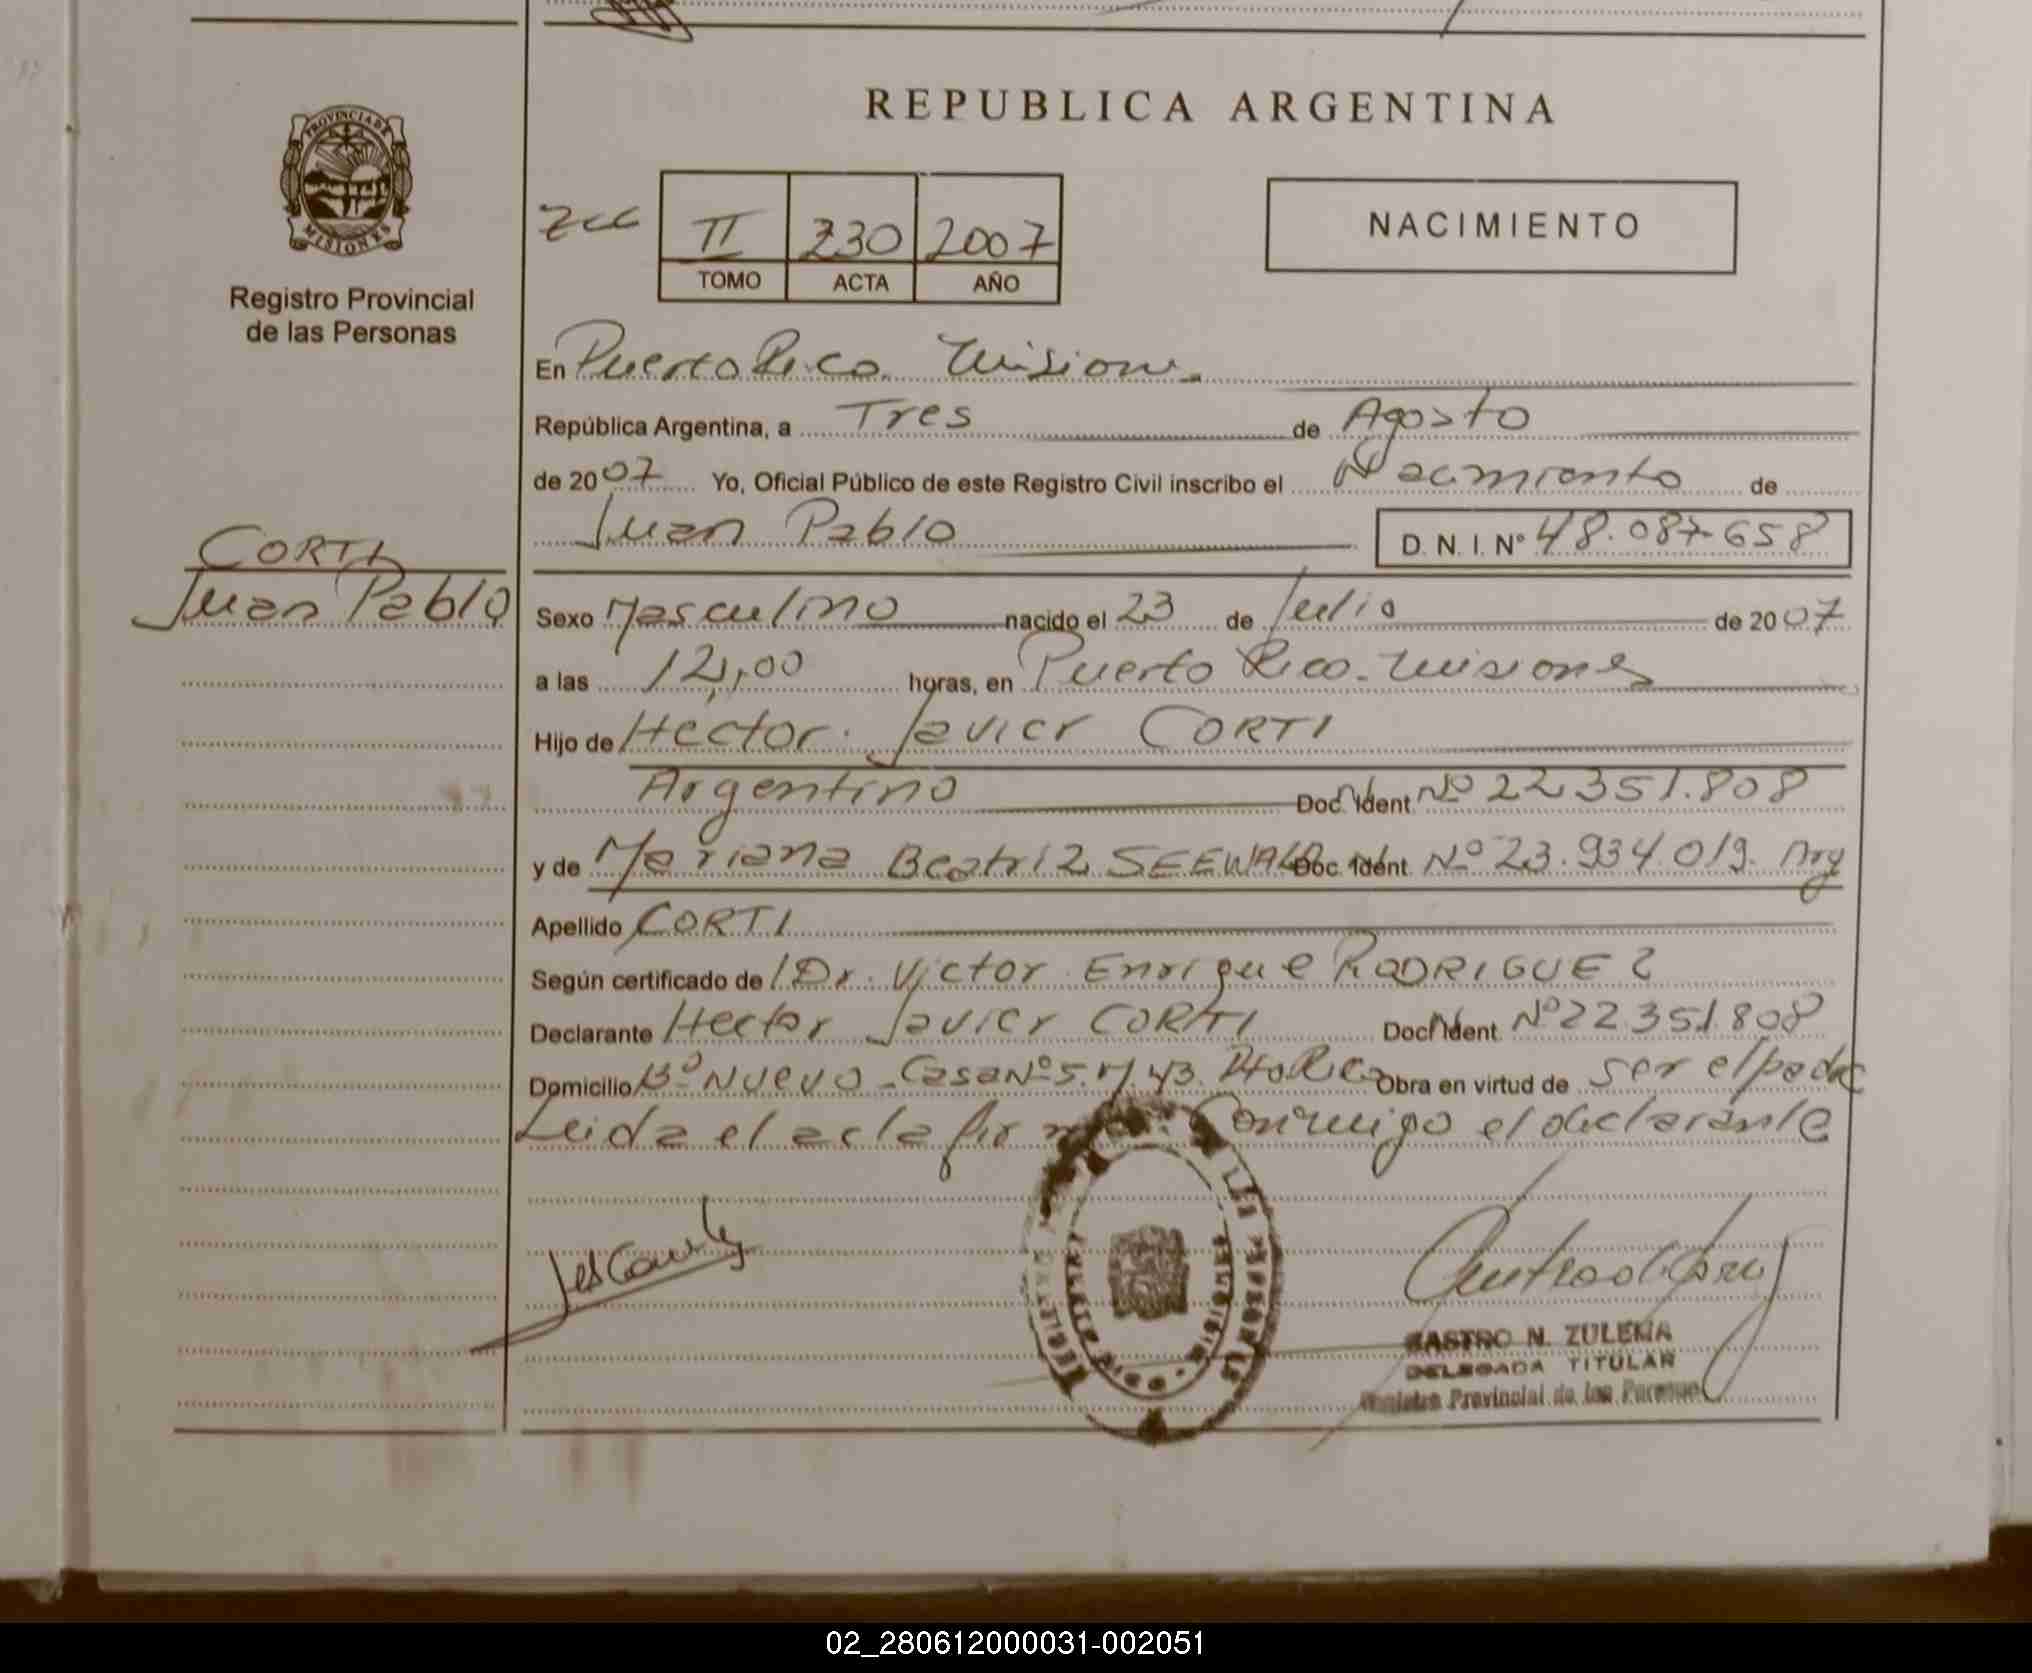 REPUBLICA ARGENTINA
PROVINCIA DE
MISIONES
Registro Provincial
de las Personas
II 230 2007
TOMO ACTA AÑO
NACIMIENTO
En Puerto Rico. Misiones
República Argentina, a Tres de Agosto
de 2007 Yo, Oficial Público de este Registro Civil inscribo el Nacimiento de
Juan Pablo D. N. I. Nº 48.087.658
CORTI
Juan Pablo
Sexo Masculino nacido el 23 de Julio de 2007
a las 12,00 horas, en Puerto Rico. Misiones
Hijo de Hector Javier CORTI
Argentino Doc. Ident. Nº 22.351.808
y de Mariana Beatriz SEEWALD Doc. Ident. Nº 23.934.019. Arg
Apellido CORTI
Según certificado de Dr. Victor Enrique RODRIGUEZ
Declarante Hector Javier CORTI Doc. Ident. Nº 22.351.808
Domicilio Bº Nuevo - Casa Nº 5. Pto Rico Obra en virtud de ser el padre
Leida el acta firma Conmigo el declarante
CASTRO N. ZULEMA
DELEGADA TITULAR
Registro Provincial de las Personas
02_280612000031-002051